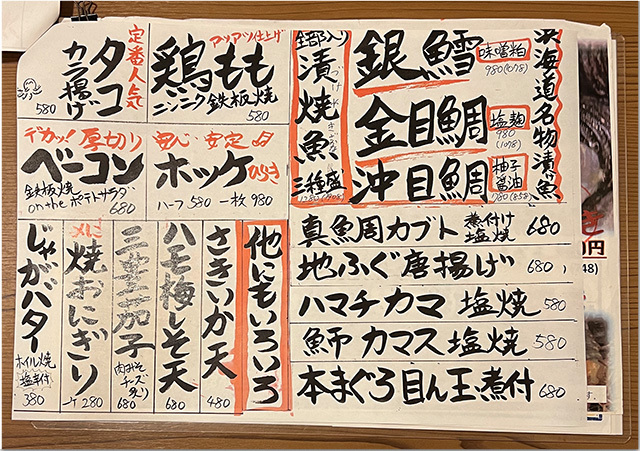 北海道名物漬け魚
銀鱈
味噌粕
980(1078)
金目鯛
塩麹
980
(1078)
沖目鯛
柚子
醤油
780(858)
全部入り
漬焼魚
づけやきざかな
三種盛
アツアツ仕上げ
鶏もも
ニンニク鉄板焼
580
定番人気
タコ
カラ揚げ
580
安心・安定
ホッケ
ひらき
ハーフ 580 一枚 980
デカッ!厚切り
ベーコン
鉄板焼
on the ポテトサラダ
680
真鯛カブト 煮付け
塩焼 680
地ふぐ唐揚げ 680
ハマチカマ 塩焼 580
魳 カマス 塩焼 580
本まぐろ目ん玉煮付 680
他にもいろいろ
さきいか天
480
ハモ梅しそ天
680
茄子
肉みそ
チーズ
680
〆に
焼おにぎり
一ケ 280
じゃがバター
ホイル焼
塩辛付
380
円
48)
す。